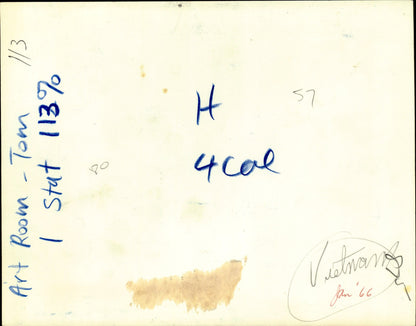 113
Art Room - Tom
1 Stat 113%
H
4 Col
57
80
Vietnam
Jan '66